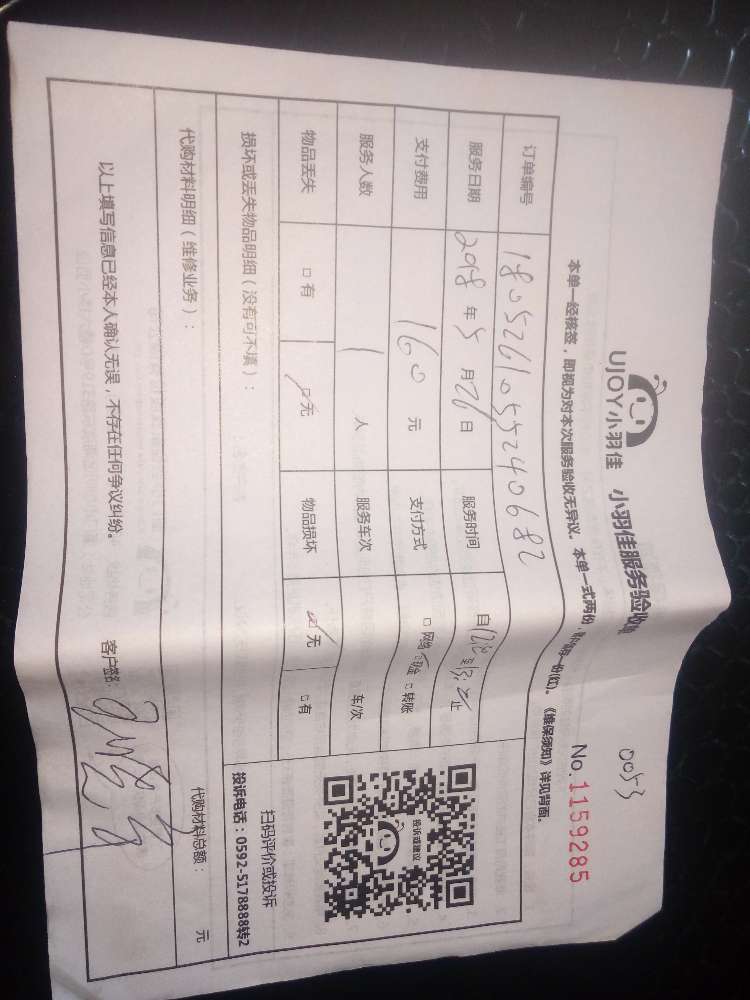 UJOY小羽佳 小羽佳服务验收
0053
No.1159285
本单一经核签，即视为对本次服务验收无异议。本单一式两份，《维保须知》详见背面。
订单编号 1805261055240682
服务日期 2018 年 5 月 26 日 服务时间 自 止
支付费用 160 元 支付方式 □ 网络 □ 转账
服务人数 1 人 服务车次 车/次
物品丢失 □ 有 □ 无 物品损坏 □ 无 □ 有
投诉或建议
扫码评价或投诉
投诉电话：0592-5178888转2
损坏或丢失物品明细（没有可不填）：
代购材料明细（维修业务）：
代购材料总额： 元
以上填写信息已经本人确认无误，不存在任何争议纠纷。 客户签